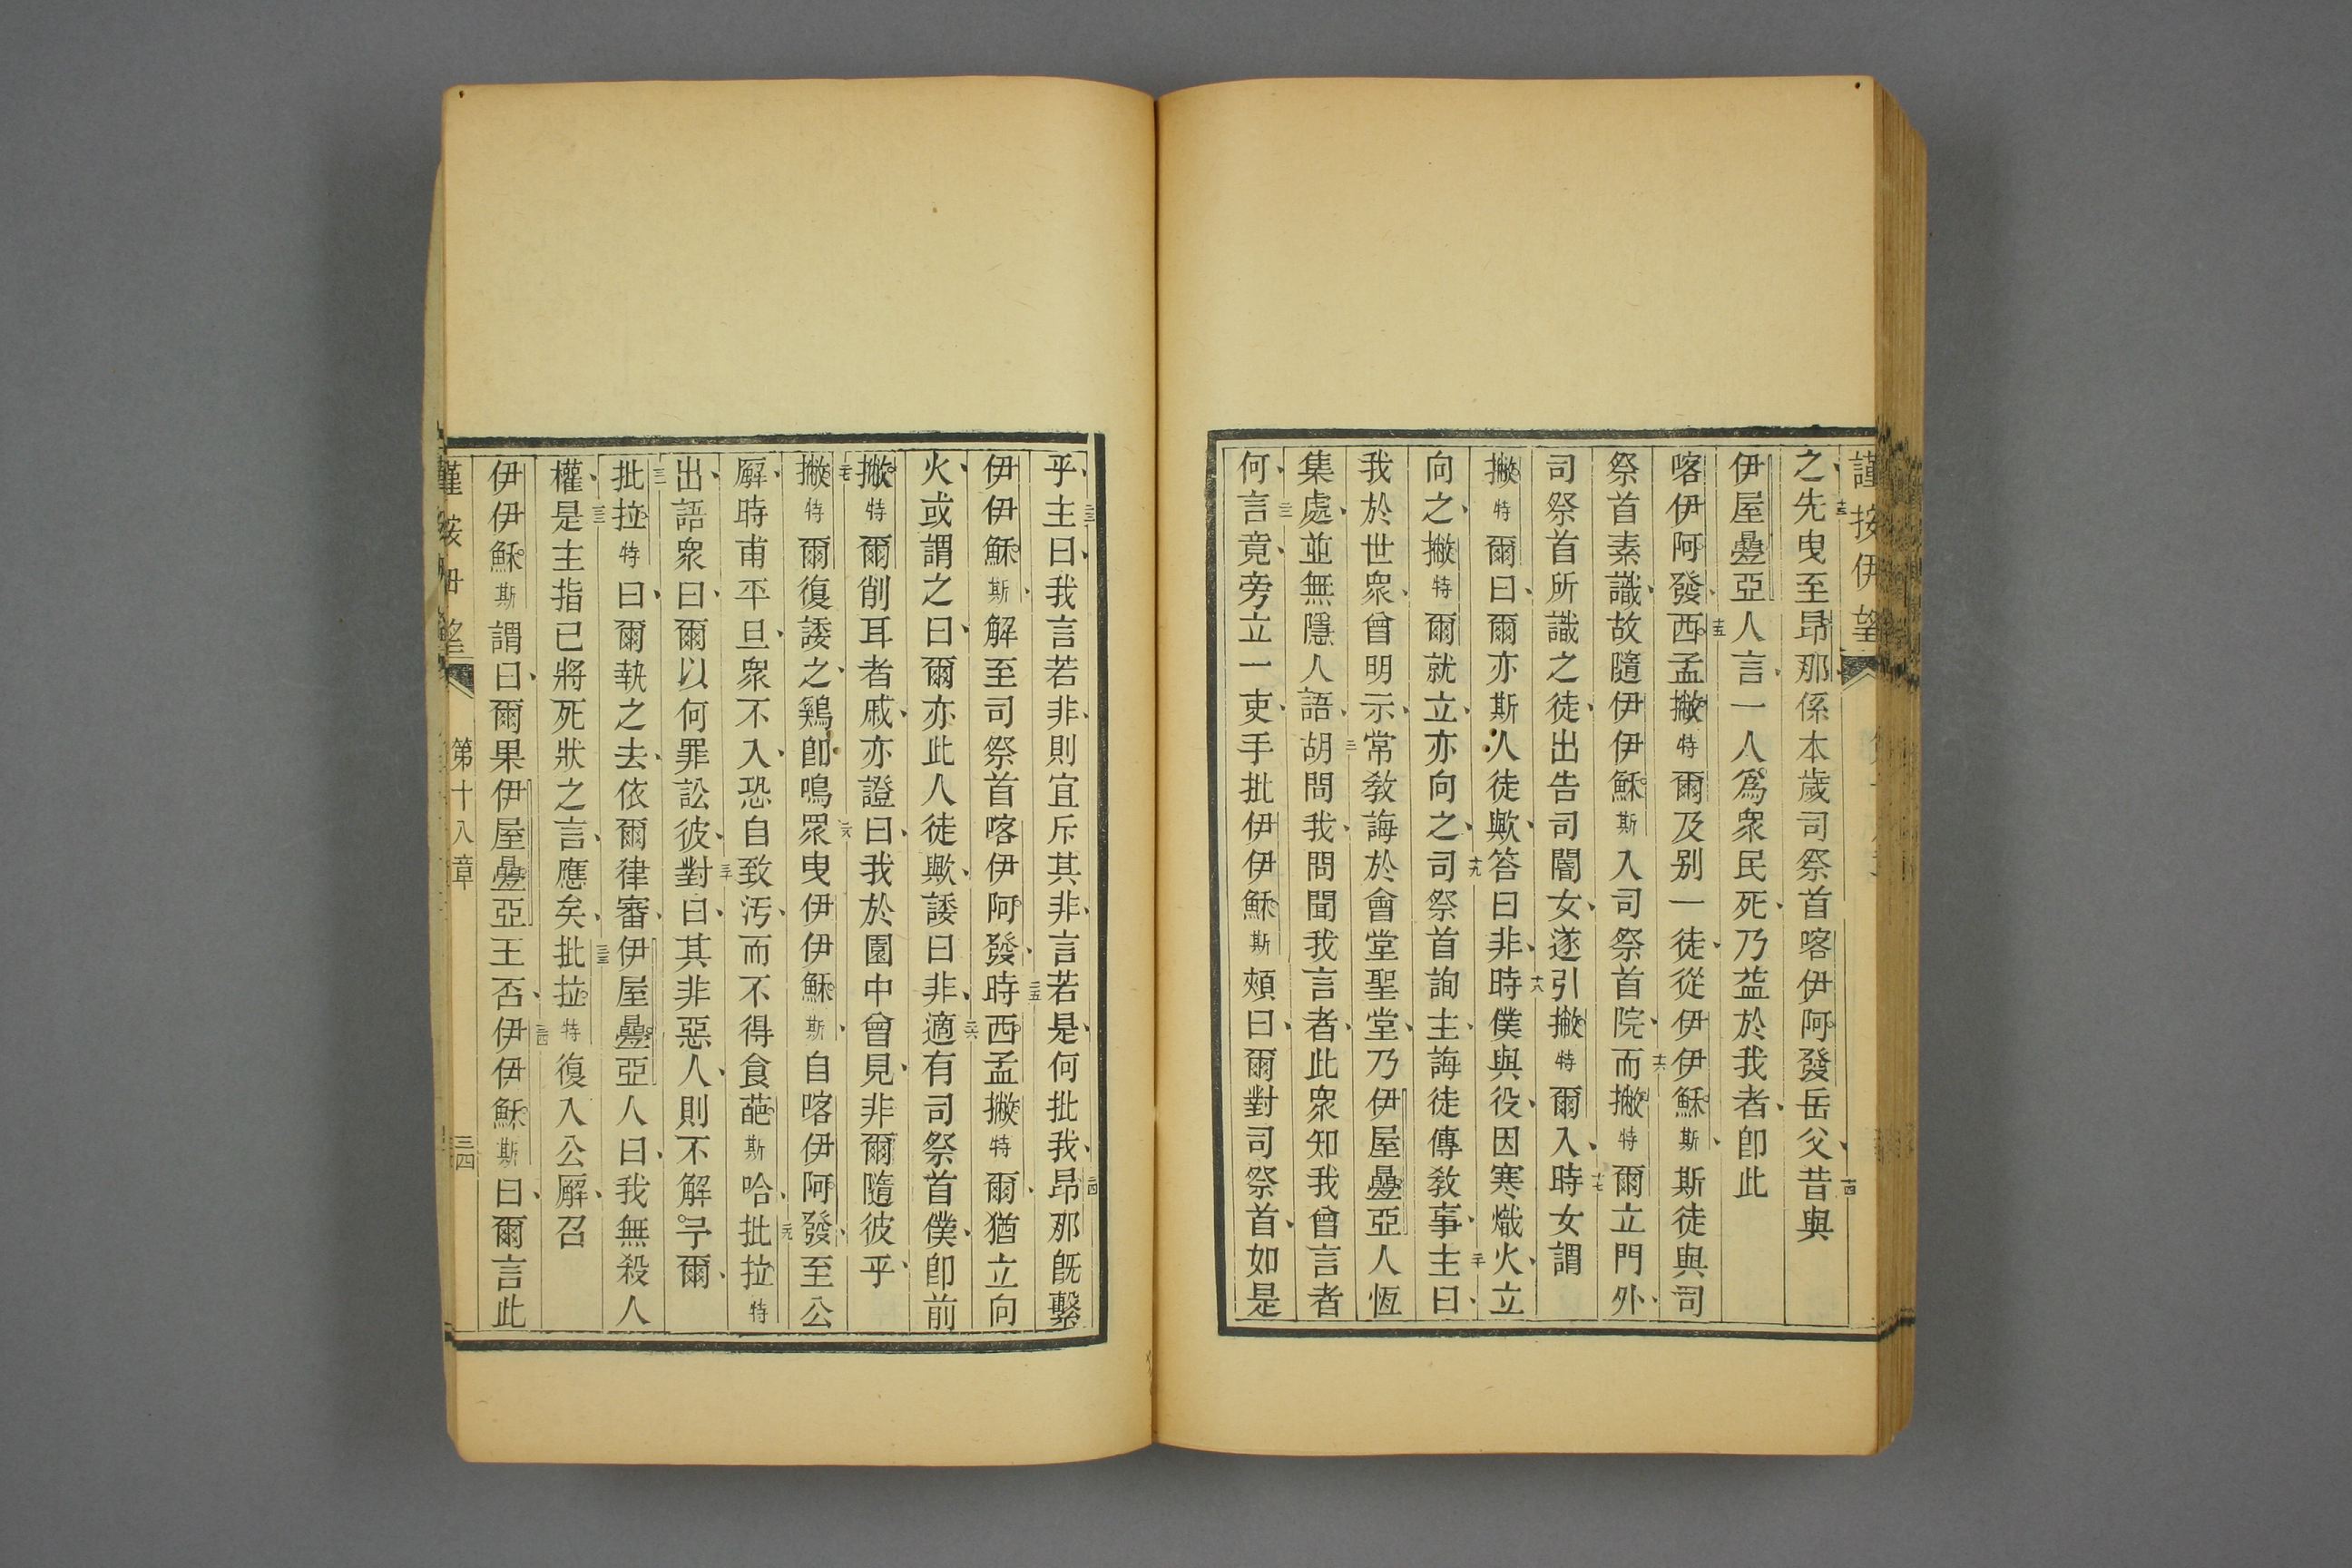 謹按伊望
之先曳至昂那係本歲司祭首喀伊阿發岳父昔與
伊屋疊亞人言一人爲衆民死乃益於我者卽此
喀伊阿發西孟撇特爾及别一徒從伊伊穌斯斯徒與司
祭首素識故隨伊伊穌斯入司祭首院而撇特爾立門外
司祭首所識之徒出告司閽女遂引撇特爾入時女謂
撇特爾曰爾亦斯人徒歟答曰非時僕與役因寒熾火立
向之撇特爾就立亦向之司祭首詢主誨徒傳敎事主曰
我於世衆曾明示常敎誨於會堂聖堂乃伊屋疊亞人恆
集處並無隱人語胡問我問聞我言者此衆知我曾言者
何言竟旁立一吏手批伊伊穌斯頰曰爾對司祭首如是
乎主曰我言若非則宜斥其非言若是何批我昂那旣繫
伊伊穌斯解至司祭首喀伊阿發時西孟撇特爾猶立向
火或謂之曰爾亦此人徒歟諉曰非適有司祭首僕卽前
撇特爾削耳者戚亦證曰我於園中曾見非爾隨彼乎
撇特爾復諉之鷄卽鳴眾曳伊伊穌斯自喀伊阿發至公
廨時甫平旦衆不入恐自致汚而不得食葩斯哈批拉特
出語衆曰爾以何罪訟彼對曰其非惡人則不解予爾
批拉特曰爾執之去依爾律審伊屋疊亞人曰我無殺人
權是主指已將死狀之言應矣批拉特復入公廨召
伊伊穌斯謂曰爾果伊屋疊亞王否伊伊穌斯曰爾言此
第十八章
三四